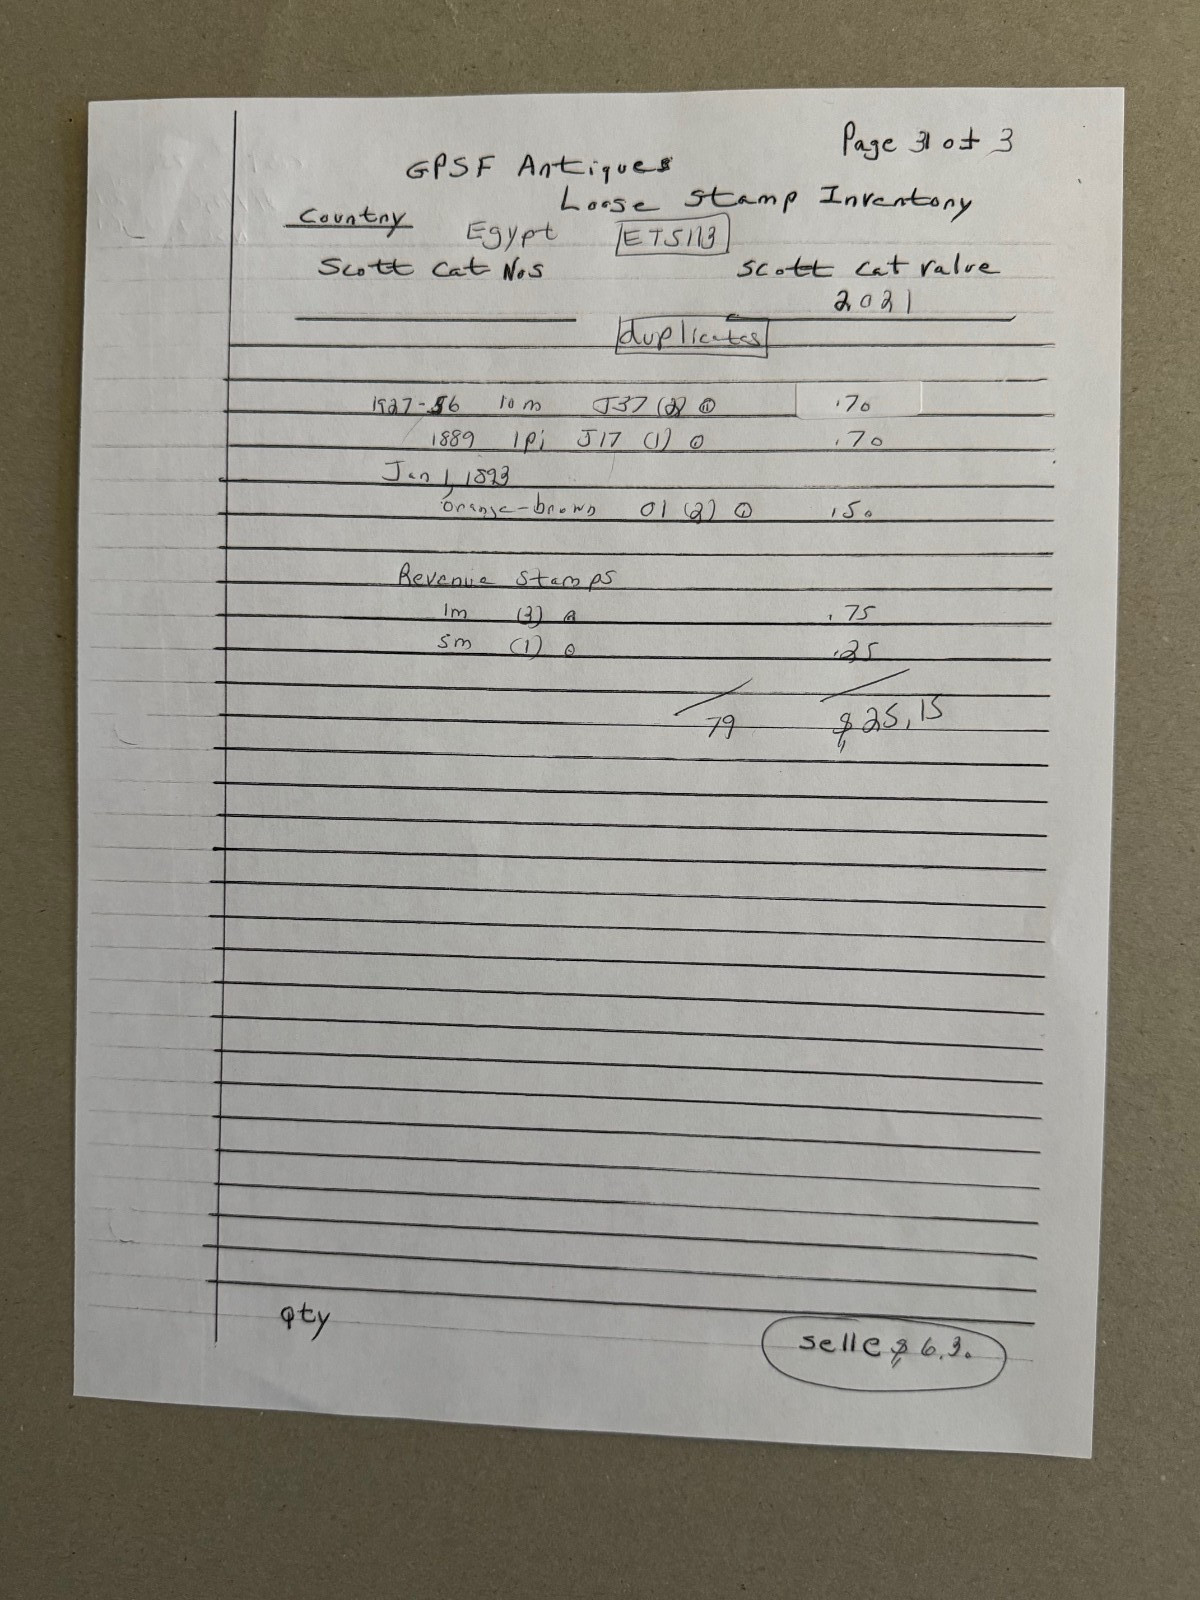 Page 3 of 3
GPSF Antiques
Loose Stamp Inventory
Country
Egypt ETS113
Scott Cat Nos Scott Cat Value
2021
duplicates
1927-56 10m J37 (2) .70
1889 1pi J17 (1) .70
Jan 1, 1893
orange-brown O1 (2) .50
Revenue Stamps
1m (3) .75
5m (1) .25
79 $25.15
qty
sell @ $6.30